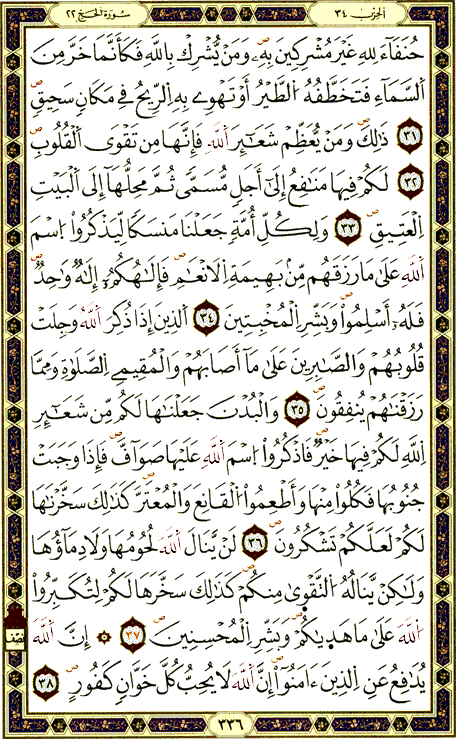 الحزب ٣٤
سورة الحج ٢٢
حُنَفَآءَ لِلهِ غَيْرَ مُشْرِكِينَ بِهِۦ وَمَنْ يُّشْرِكْ بِاللَّهِ فَكَأَنَّمَا خَرَّ مِنَ
اَلسَّمَآءِ فَتَخَطَّفُهُ اُلطَّيْرُ أَوْ تَهْوِے بِهِ اِلرِّيحُ فِے مَكَانٍ سَحِيقٍ
٣١ ذَٰلِكَ وَمَنْ يُّعَظِّمْ شَعَٰٓئِرَ اَللَّهِ فَإِنَّهَا مِن تَقْوَى اَلْقُلُوبِ
٣٢ لَكُمْ فِيهَا مَنَٰفِعُ إِلَىٰٓ أَجَلٍ مُّسَمًّى ثُمَّ مَحِلُّهَا إِلَى اَلْبَيْتِ
اِلْعَتِيقِ ٣٣ وَلِكُلِّ أُمَّةٍ جَعَلْنَا مَنسَكًا لِّيَذْكُرُواْ اُسْمَ
اَللَّهِ عَلَىٰ مَا رَزَقَهُم مِّنۢ بَهِيمَةِ اِلْأَنْعَٰمِ فَإِلَٰهُكُمْ إِلَٰهٌ وَٰحِدٌ
فَلَهُۥ أَسْلِمُواْ وَبَشِّرِ اِلْمُخْبِتِينَ ٣٤ اَلذِينَ إِذَا ذُكِرَ اَللَّهُ وَجِلَتْ
قُلُوبُهُمْ وَالصَّٰبِرِينَ عَلَىٰ مَآ أَصَابَهُمْ وَالْمُقِيمِے اِلصَّلَوٰةِ وَمِمَّا
رَزَقْنَٰهُمْ يُنفِقُونَ ٣٥ وَالْبُدْنَ جَعَلْنَٰهَا لَكُم مِّن شَعَٰٓئِرِ
اِللَّهِ لَكُمْ فِيهَا خَيْرٌ فَاذْكُرُواْ اُسْمَ اَللَّهِ عَلَيْهَا صَوَآفَّ فَإِذَا وَجَبَتْ
جُنُوبُهَا فَكُلُواْ مِنْهَا وَأَطْعِمُواْ اُلْقَانِعَ وَالْمُعْتَرَّ كَذَٰلِكَ سَخَّرْنَٰهَا
لَكُمْ لَعَلَّكُمْ تَشْكُرُونَ ٣٦ لَنْ يَّنَالَ اَللَّهَ لُحُومُهَا وَلَا دِمَآؤُهَا
وَلَٰكِنْ يَّنَالُهُ اُلتَّقْوَىٰ مِنكُمْ كَذَٰلِكَ سَخَّرَهَا لَكُمْ لِتُكَبِّرُواْ
اُللَّهَ عَلَىٰ مَا هَدَىٰكُمْ وَبَشِّرِ اِلْمُحْسِنِينَ ٣٧ ۞ إِنَّ اَللَّهَ
يُدَٰفِعُ عَنِ اِلذِينَ ءَامَنُوٓاْ إِنَّ اَللَّهَ لَا يُحِبُّ كُلَّ خَوَّانٍ كَفُورٍ ٣٨
نصف
٣٣٦